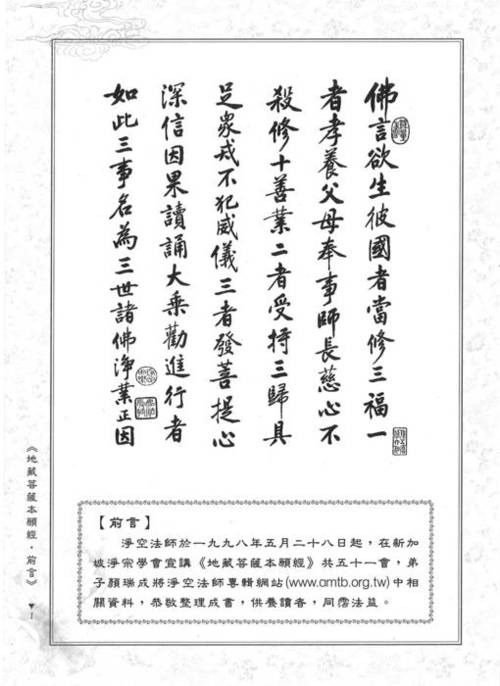 佛言欲生彼國者當修三福一
者孝養父母奉事師長慈心不
殺修十善業二者受持三歸具
足眾戒不犯威儀三者發菩提心
深信因果讀誦大乘勸進行者
如此三事名為三世諸佛淨業正因
【前言】
淨空法師於一九九八年五月二十八日起，在新加
坡淨宗學會宣講《地藏菩薩本願經》共五十一會，弟
子顏瑞成將淨空法師專輯網站(www.amtb.org.tw)中相
關資料，恭敬整理成書，供養讀者，同霑法益。
《地藏菩薩本願經．前言》
▼1